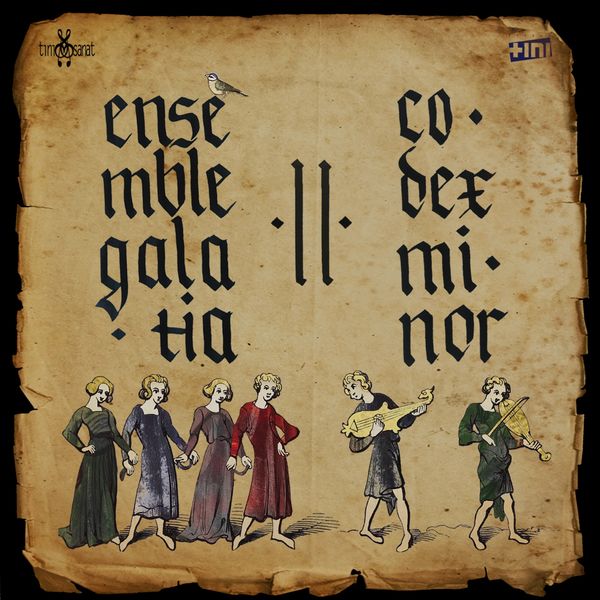 tımsanat
tını
ense
mble
gala
· tia
· || ·
co ·
dex
mi ·
nor